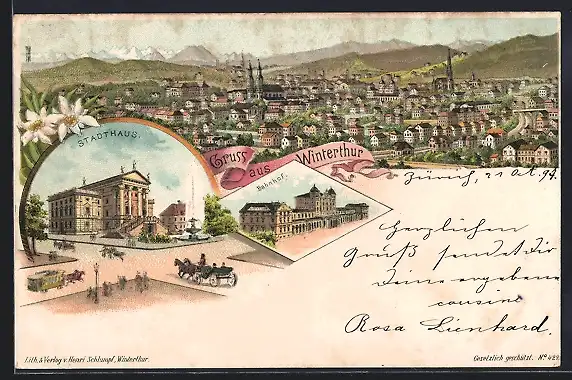 STADTHAUS.
Gruss aus Winterthur
Bahnhof.
Zürich, 21 Okt. 94.
Herzlichen
Gruß sendet dir
deine ergebene
cousine
Rosa Lienhard.
Lith. & Verlag v. Henri Schlumpf, Winterthur.
Gesetzlich geschützt. No 429.